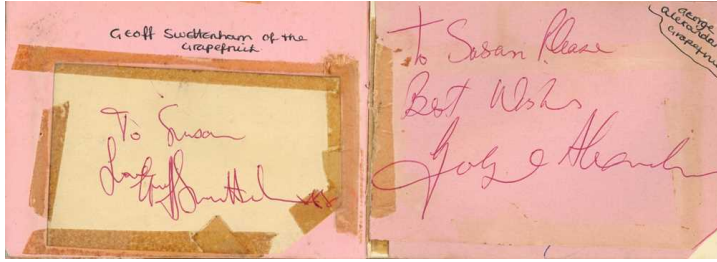 Geoff Swettenham of the
Grapefruit
To Susan
Love Geoff Swettenham xx
To Susan Please
Best Wishes
George Alexander
George
Alexander
Grapefruit